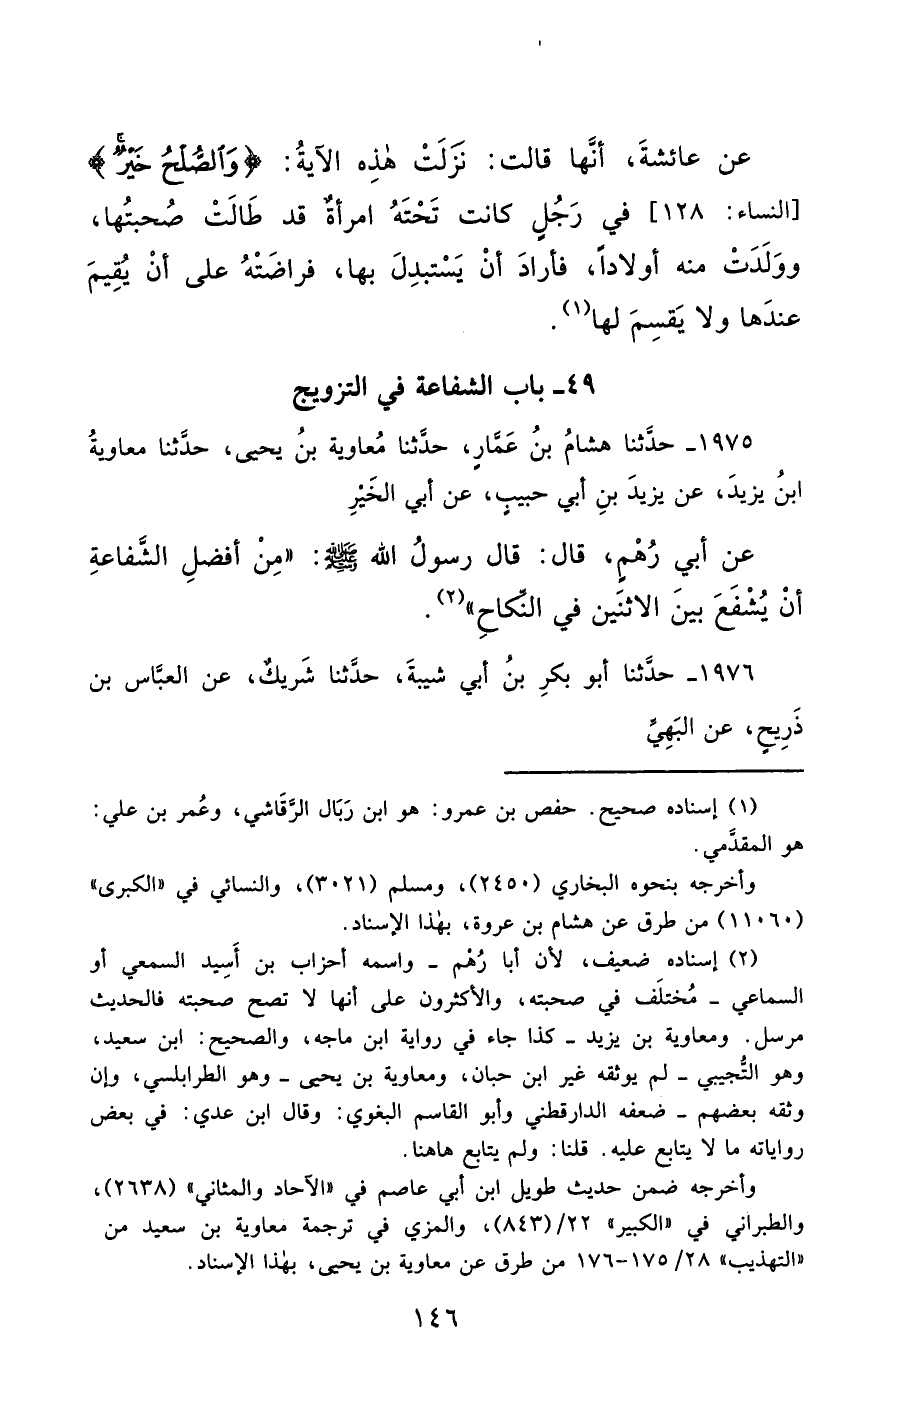 عن عائشةَ، أنَّها قالت: نَزَلَتْ هٰذِه الآيةُ: ﴿وَٱلصُّلْحُ خَيْرٌ ۗ﴾
[النساء: ١٢٨] في رَجُلٍ كانت تَحْتَهُ امرأةٌ قد طَالَتْ صُحبتُها،
ووَلَدَتْ منه أولاداً، فأرادَ أنْ يَسْتبدِلَ بها، فراضَتْهُ على أنْ يُقِيمَ
عندَها ولا يَقسِمَ لها(١).
٤٩ـ باب الشفاعة في التزويج
١٩٧٥ـ حدَّثنا هشامُ بنُ عَمَّارٍ، حدَّثنا مُعاوية بنُ يحيى، حدَّثنا معاويةُ
ابنُ يزيدَ، عن يزيدَ بنِ أبي حبيبٍ، عن أبي الخَيْرِ
عن أبي رُهْمٍ، قال: قال رسولُ الله ﷺ: «مِنْ أفضلِ الشَّفاعةِ
أنْ يُشْفَعَ بينَ الاثنَين في النِّكاحِ»(٢).
١٩٧٦ـ حدَّثنا أبو بكرِ بنُ أبي شيبةَ، حدَّثنا شَريكٌ، عن العبَّاس بن
ذَرِيحٍ، عن البَهِيِّ
(١) إسناده صحيح. حفص بن عمرو: هو ابن رَبَال الرَّقَاشي، وعُمر بن علي:
هو المقدَّمي.
وأخرجه بنحوه البخاري (٢٤٥٠)، ومسلم (٣٠٢١)، والنسائي في «الكبرى»
(١١٠٦٠) من طرق عن هشام بن عروة، بهٰذا الإسناد.
(٢) إسناده ضعيف، لأن أبا رُهْم ـ واسمه أحزاب بن أَسِيد السمعي أو
السماعي ـ مُختلَف في صحبته، والأكثرون على أنها لا تصح صحبته فالحديث
مرسل. ومعاوية بن يزيد ـ كذا جاء في رواية ابن ماجه، والصحيح: ابن سعيد،
وهو التُّجيبي ـ لم يوثقه غير ابن حبان، ومعاوية بن يحيى ـ وهو الطرابلسي، وإن
وثقه بعضهم ـ ضعفه الدارقطني وأبو القاسم البغوي: وقال ابن عدي: في بعض
رواياته ما لا يتابع عليه. قلنا: ولم يتابع هاهنا.
وأخرجه ضمن حديث طويل ابن أبي عاصم في «الآحاد والمثاني» (٢٦٣٨)،
والطبراني في «الكبير» ٢٢/(٨٤٣)، والمزي في ترجمة معاوية بن سعيد من
«التهذيب» ٢٨/ ١٧٥-١٧٦ من طرق عن معاوية بن يحيى، بهٰذا الإسناد.
١٤٦